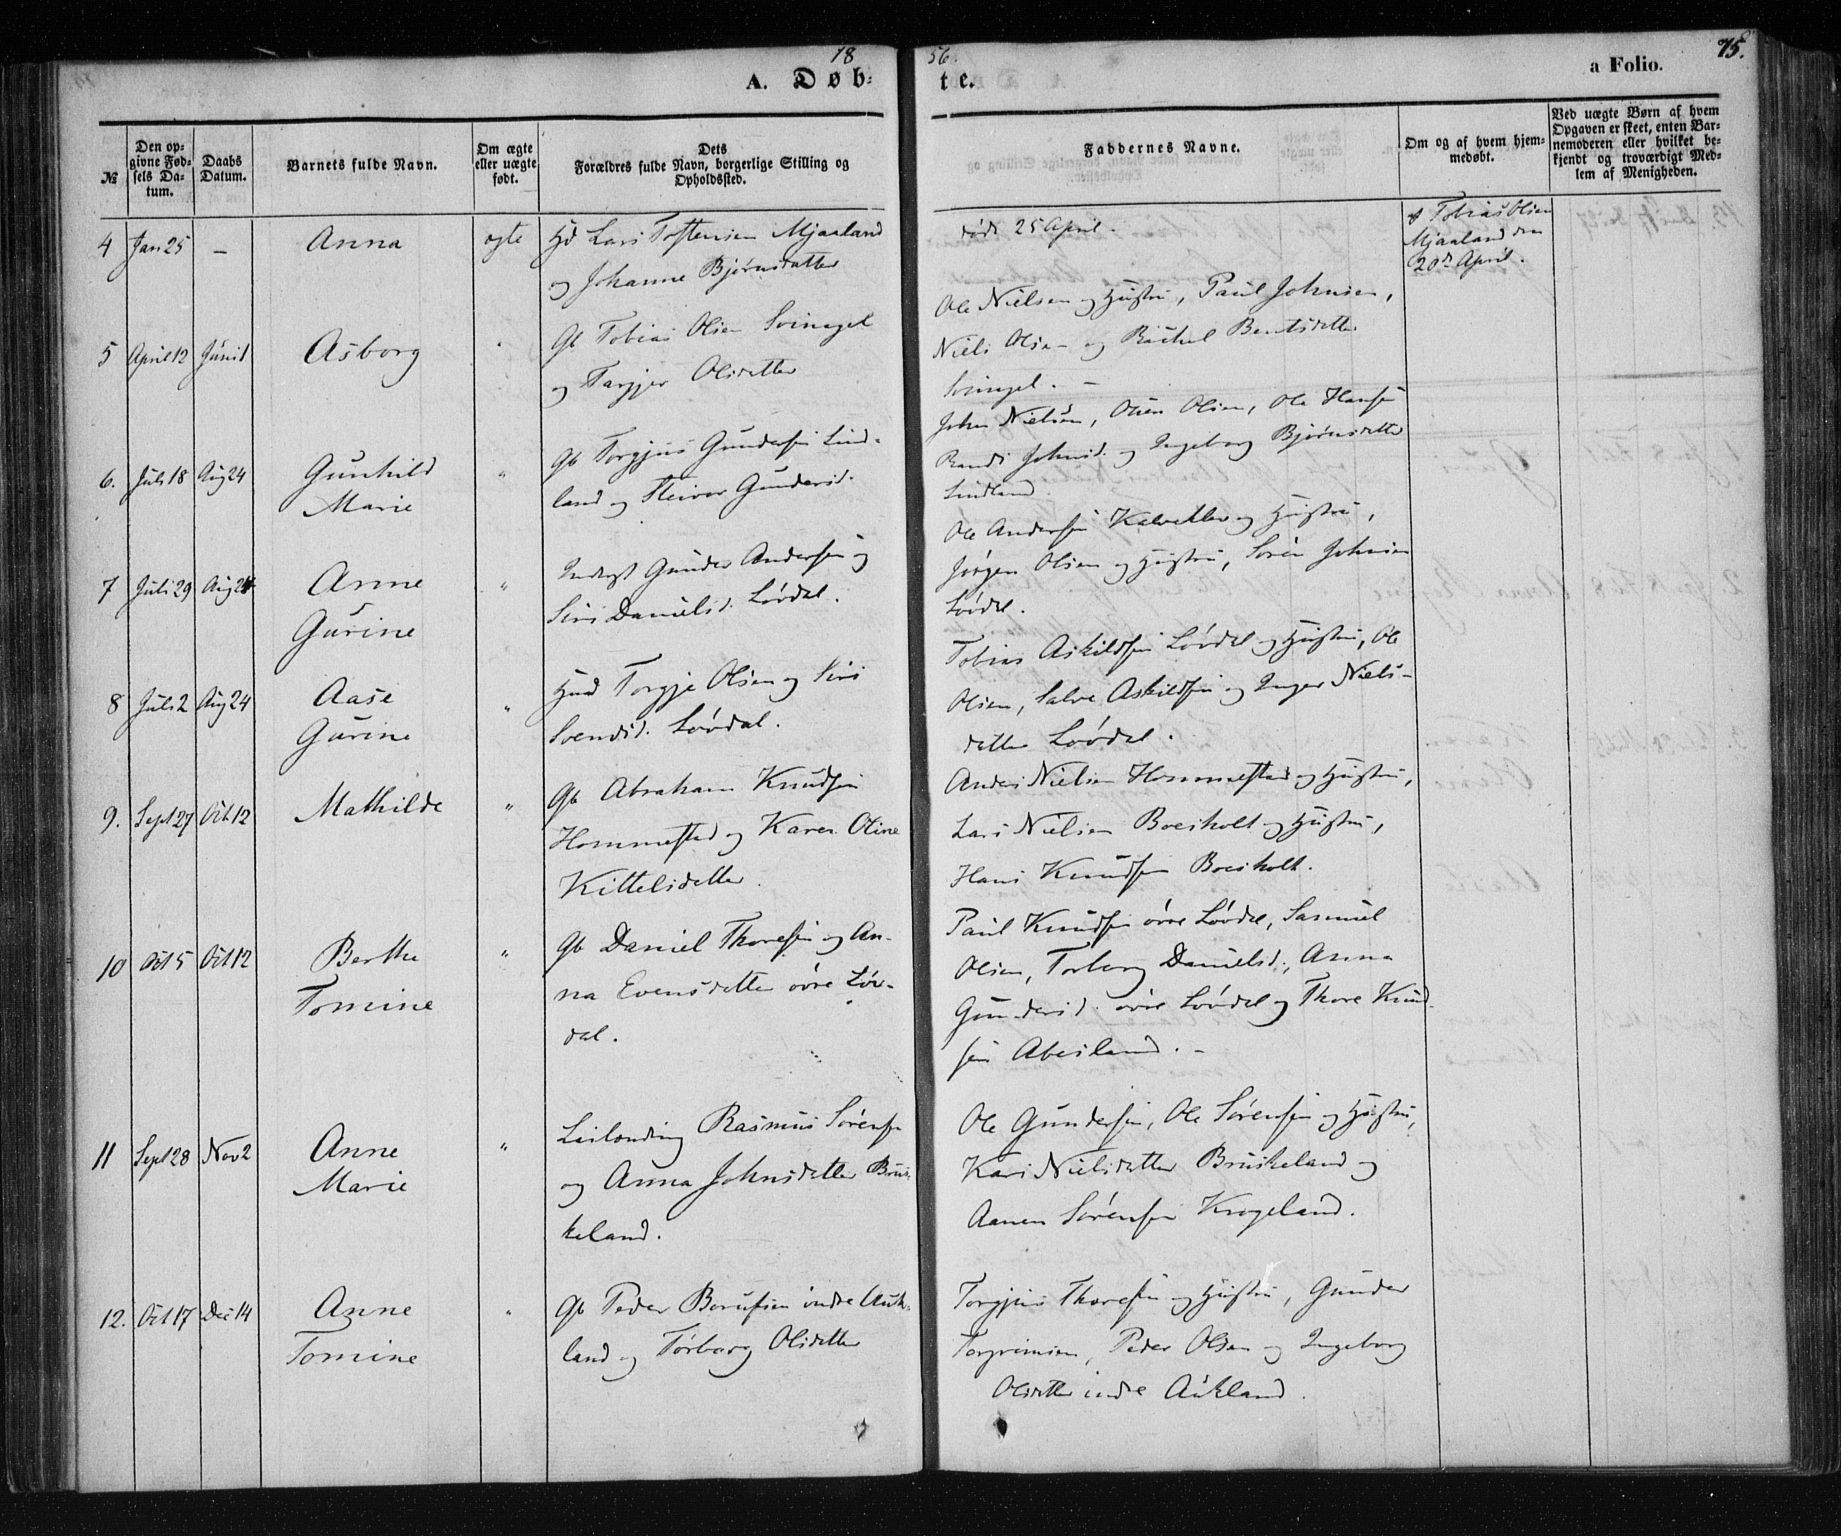 18 56. 75.
A. Døb- te. a Folio.
№
Den opgivne Fødsels Datum.
Daabs Datum.
Barnets fulde Navn.
Om ægte eller uægte født.
Dets Forældres fulde Navn, borgerlige Stilling og Opholdssted.
Faddernes Navne.
Om og af hvem hjemmedøbt.
Ved uægte Børn af hvem Opgaven er skeet, enten Barnemoderen eller hvilket bekjendt og troværdigt Medlem af Menigheden.
4 Jan 25 – Anna ægte Hd Lars Toftensen Mjaaland
og Johanne Bjørnsdatter
død 25 April.
Tobias Olsen
Mjaaland den
20de April.
5 April 12 Juni 1 Asborg " Gb Tobias Olsen Svinegel
og Targjer Olsdatter
Ole Nielsen og Hustru, Paul Johnsen,
Niels Olsen og Rachel Bentsdatter
Svinegel. –
6. Juli 18 Aug 24 Gunhild
Marie
" Gb Torgjus Gundersen Lind-
land og Steivor Gundersd.
John Nielsen, Olsen, Ole Hansen
Randi Johnsd. og Ingeborg Bjørnsdatter
Lindland.
7 Juli 29 Aug 24 Anne
Gurine
" Inderst Gunder Andersen og
Siri Danielsd. Løvdal.
Ole Andersen Kalvetler og Hustru,
Jörgen Olsen og Hustru, Sören Johnsen
Løvdal.
8 Juli 2 Aug 24 Aase
Gurine
" Hmd Torgje Olsen og Siri
Svendsd. Løvdal.
Tobias Askildsen Løvdal og Hustru, Ole
Olsen, Salve Askildsen og Inger Niels-
datter Løvdal.
9. Sept 27 Oct 12 Mathilde " Gb Abraham Knudsen
Hommestad og Karen Oline
Kittelsdatter.
Anders Nielsen Hommestad og Hustru,
Lars Nielsen Boesholt og Hustru,
Hans Knudsen Boesholt.
10 Oct 5 Oct 12 Berthe
Tomine
" Gb Daniel Thoresen og An-
na Evensdatter övre Løv-
dal.
Paul Knudsen övre Løvdal, Samuel
Olsen, Torborg Danielsd., Anna
Gundersd. övre Løvdal og Thore Knud-
sen Abesland. –
11 Sept 28 Nov 2 Anne
Marie
" Leilending Rasmus Sörensen
og Anna Johnsdatter Brus-
keland.
Ole Gundersen, Ole Sörensen og Hustru,
Kari Nielsdatter Bruskeland og
Aanen Sörensen Krogeland.
12. Oct 17 Dec 14 Anne
Tomine
" Gb Peder Berulsen indre Auk-
land og Torborg Olsdatter
Torgjus Thoresen og Hustru, Gunder
Torgrimsen, Peder Olsen og Ingeborg
Olsdatter indre Aukland.